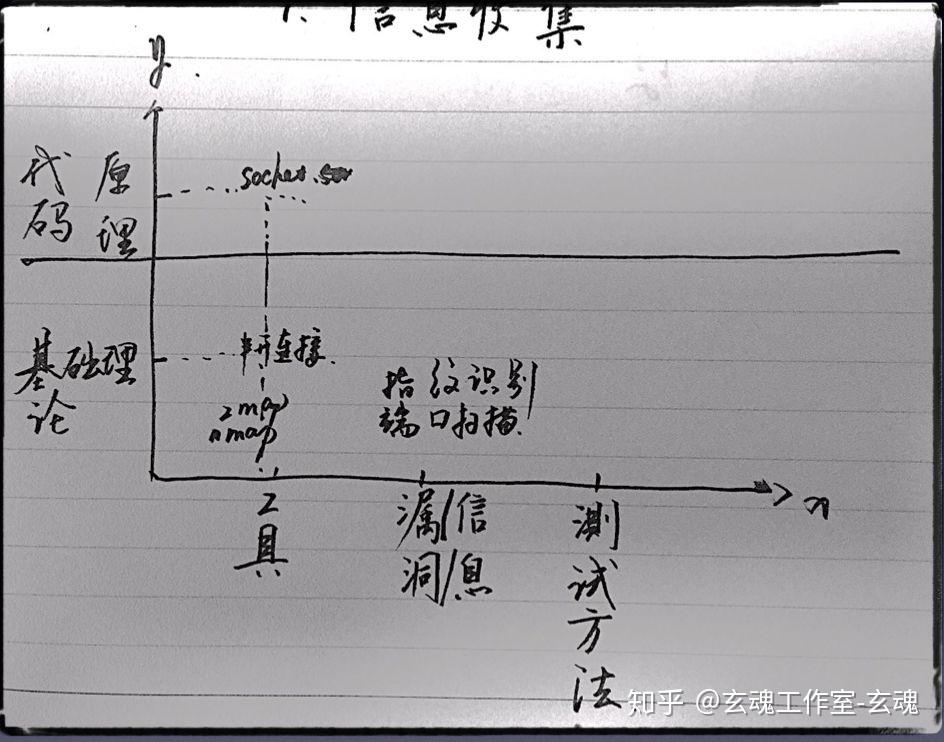 1. 信息收集
y
代码
原理
socket.
半开连接
基础理论
zmap
nmap
指纹识别
端口扫描
x
工具
漏洞/信息
测试方法
知乎 @玄魂工作室-玄魂